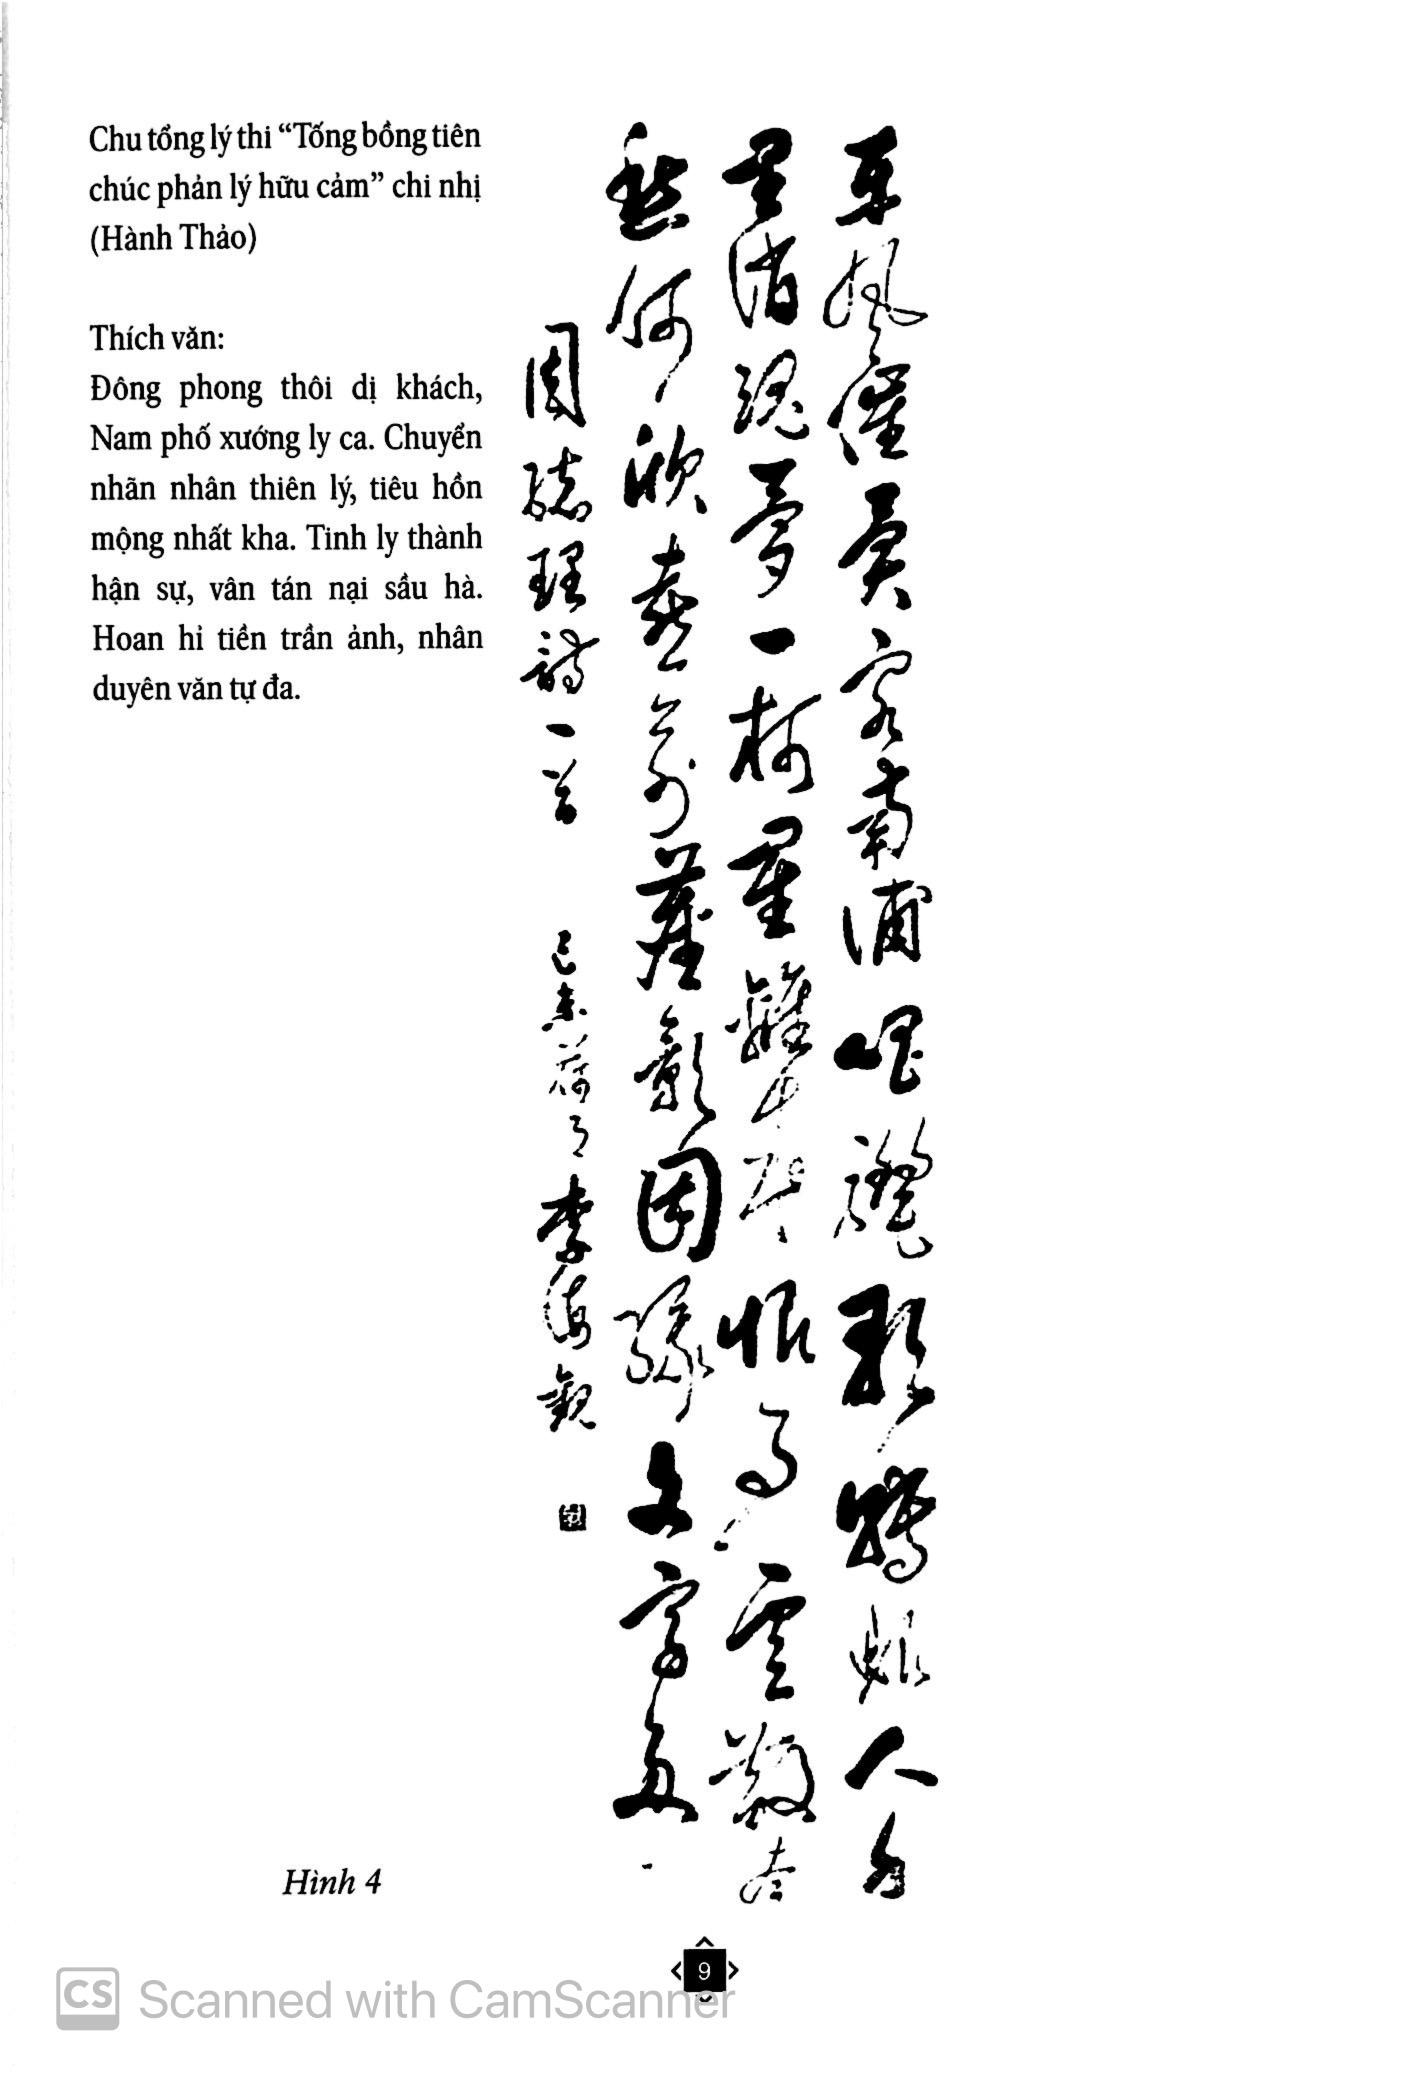 Chu tổng lý thi “Tống bồng tiên
chúc phản lý hữu cảm” chi nhị
(Hành Thảo)
Thích văn:
Đông phong thôi dị khách,
Nam phố xướng ly ca. Chuyển
nhãn nhân thiên lý, tiêu hồn
mộng nhất kha. Tinh ly thành
hận sự, vân tán nại sầu hà.
Hoan hỉ tiền trần ảnh, nhân
duyên văn tự đa.
東風催異客南浦唱驪歌轉眼人千
里消魂夢一柯星離成恨事雲散奈
愁何欣喜前塵影因緣文字多
周總理詩一首 己未荷月李海觀
Hình 4
9
CS Scanned with CamScanner